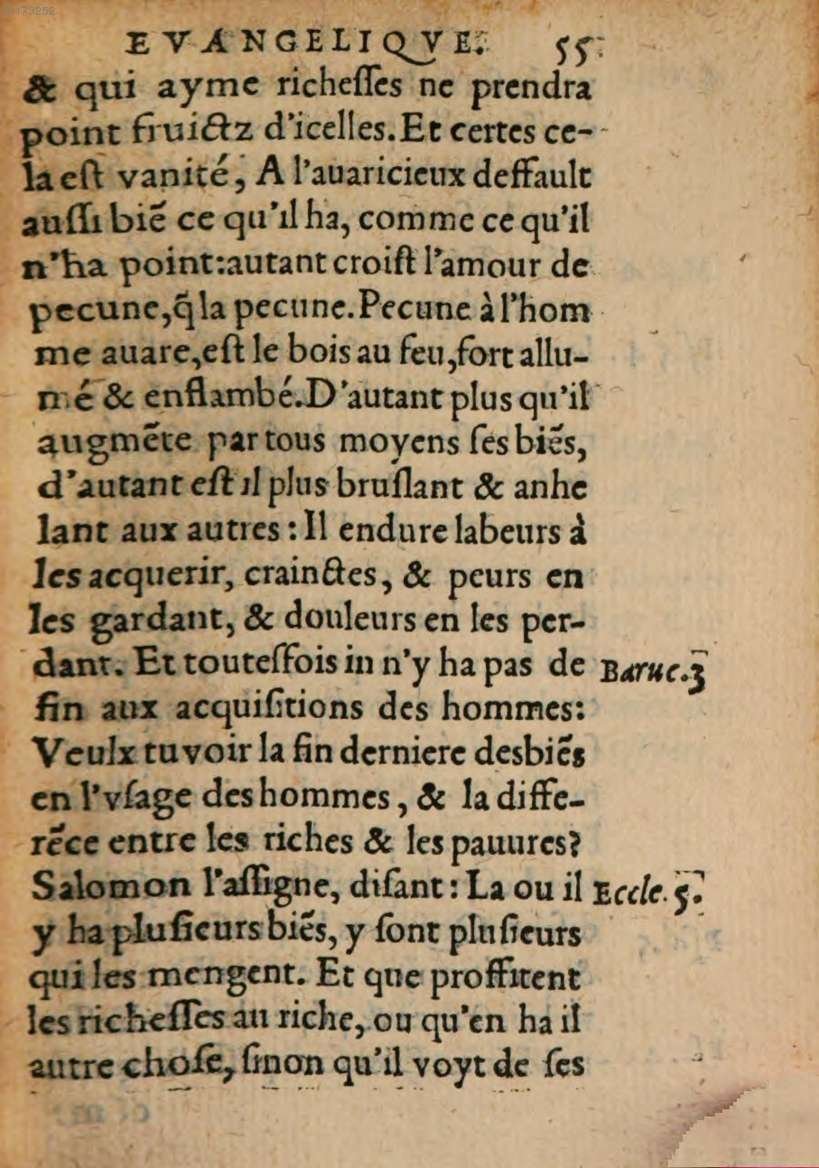 EVANGELIQVE. 55
& qui ayme richesses ne prendra
point fruictz d'icelles. Et certes ce-
la est vanité, A l'auaricieux deffault
aussi biē ce qu'il ha, comme ce qu'il
n'ha point: autant croist l'amour de
pecune, q̃ la pecune. Pecune à l'hom
me auare, est le bois au feu, fort allu-
mé & enflambé. D'autant plus qu'il
augmēte par tous moyens ses biēs,
d'autant est il plus bruslant & anhe
lant aux autres: Il endure labeurs à
les acquerir, crainctes, & peurs en
les gardant, & douleurs en les per-
dant. Et toutesfois in n'y ha pas de Baruc. 3
fin aux acquisitions des hommes:
Veulx tu voir la fin derniere des biēs
en l'vsage des hommes, & la diffe-
rēce entre les riches & les pauures?
Salomon l'assigne, disant: La ou il Eccle. 5.
y ha plusieurs biēs, y sont plusieurs
qui les mengent. Et que proffitent
les richesses au riche, ou qu'en ha il
autre chose, sinon qu'il voyt de ses